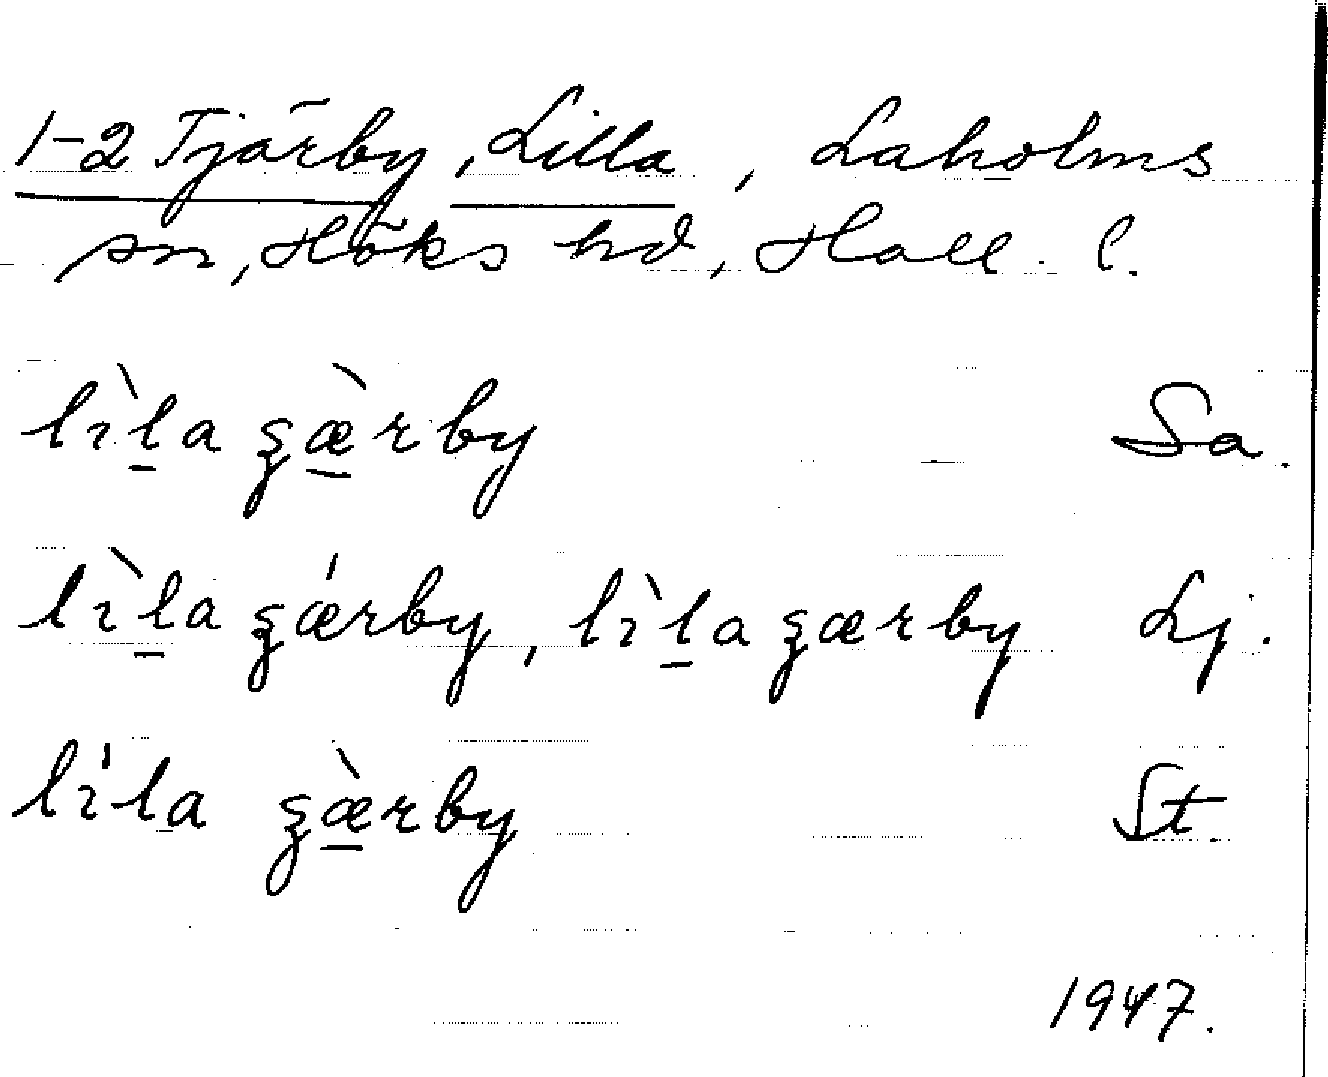 1-2 Tjärby, Lilla, Laholms
sn, Höks hd, Hall. l.
lìla ʓæ̀rby Sa.
lìla ʓǽrby, lìla ʓærby Lj.
líla ʓæ̀rby St.
1947.